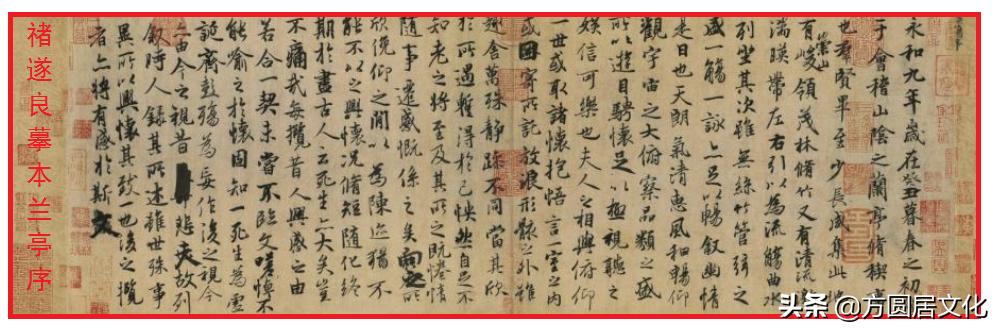 褚遂良摹本兰亭序
永和九年歲在癸丑暮春之初
于會稽山陰之蘭亭脩稧事
也羣賢畢至少長咸集此地
有崇山峻領茂林脩竹又有清流激
湍暎帶左右引以為流觴曲水
列坐其次雖無絲竹管弦之
盛一觴一詠亦足以暢叙幽情
是日也天朗氣清惠風和暢仰
觀宇宙之大俯察品類之盛
所以遊目騁懷足以極視聽之
娛信可樂也夫人之相與俯仰
一世或取諸懷抱悟言一室之內
或因寄所託放浪形骸之外雖
趣舍萬殊靜躁不同當其欣
於所遇暫得於己怏然自足不
知老之將至及其所之既惓情
隨事遷感慨係之矣向之所
欣俛仰之間以為陳迹猶不
能不以之興懷況脩短隨化終
期於盡古人云死生亦大矣豈
不痛哉每攬昔人興感之由
若合一契未嘗不臨文嗟悼不
能喻之於懷固知一死生為虛
誕齊彭殤為妄作後之視今
亦由今之視昔悲夫故列
叙時人錄其所述雖世殊事
異所以興懷其致一也後之攬
者亦將有感於斯文
头条 @方圆居文化